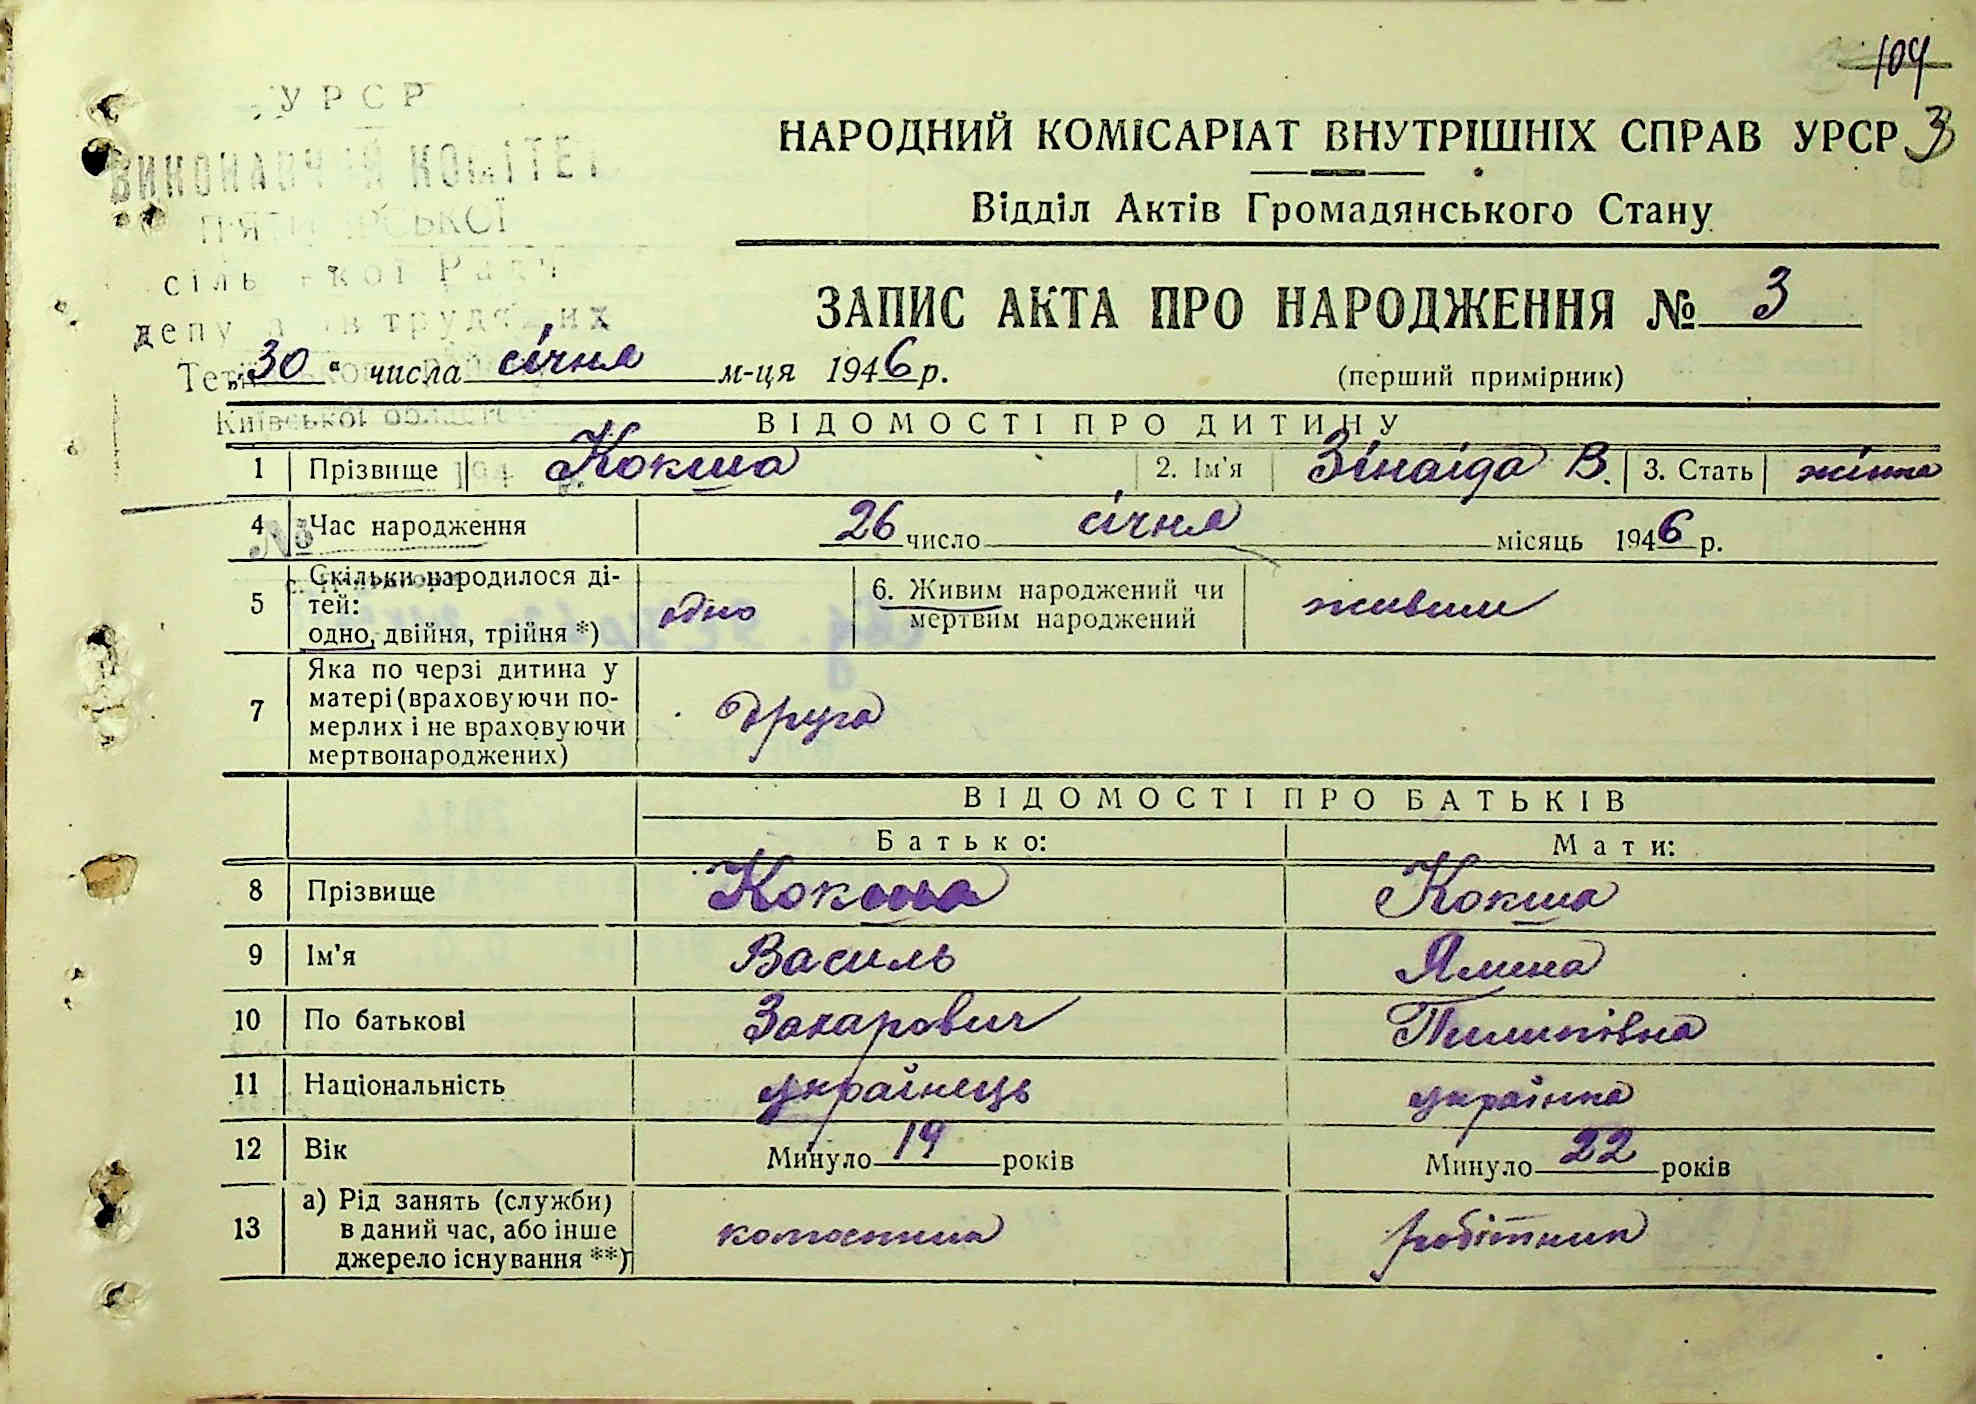 109
УРСР
ВИКОНАВЧИЙ КОМІТЕТ
П'ЯТИГІРСЬКОЇ
сільської Ради
депутатів трудящих
Київської області
194 р.
№
НАРОДНИЙ КОМІСАРІАТ ВНУТРІШНІХ СПРАВ УРСР 3
Відділ Актів Громадянського Стану
ЗАПИС АКТА ПРО НАРОДЖЕННЯ № 3
„30“ числа січня м-ця 1946 р. (перший примірник)
ВІДОМОСТІ ПРО ДИТИНУ
1 Прізвище Кокша 2. Ім'я Зінаіда В. 3. Стать жінка
4 Час народження 26 число січня місяць 1946 р.
5 Скільки народилося ді-
тей:
одно, двійня, трійня *) одно 6. Живим народжений чи
мертвим народжений живим
7 Яка по черзі дитина у
матері (враховуючи по-
мерлих і не враховуючи
мертвонароджених) друга
ВІДОМОСТІ ПРО БАТЬКІВ
Батько: Мати:
8 Прізвище Кокша Кокша
9 Ім'я Василь Ялина
10 По батькові Захарович Пилипівна
11 Національність українець українка
12 Вік Минуло 19 років Минуло 22 років
13 а) Рід занять (служби)
в даний час, або інше
джерело існування **) робітник